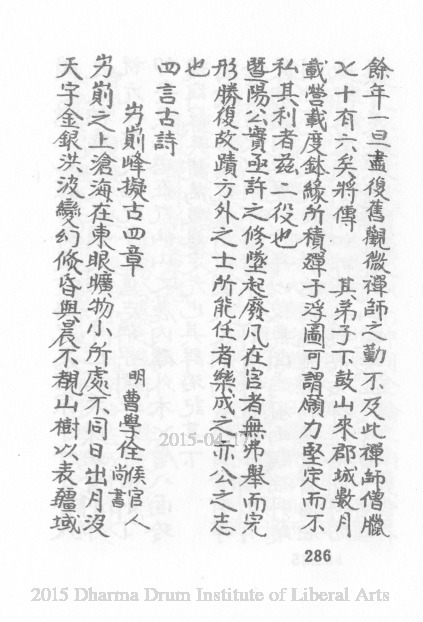 餘年一旦盡復舊觀微禪師之勤不及此禪師僧臘
七十有六矣將傳 其弟子下鼓山來郡城數月
載營載度鉢緣所積殫于浮圖可謂願力堅定而不
私其利者茲二役也
暨陽公實亟許之修墜起廢凡在官者無弗舉而完
形勝復故蹟方外之士所能任者樂成之亦公之志
也
四言古詩
屴崱峰擬古四章
明曹學佺侯官人尚書
屴崱之上滄海在東眼曠物小所處不同日出月沒
天字金銀洪波變幻倐昏與晨不覩山樹以表疆域
286
2015-04-17
2015 Dharma Drum Institute of Liberal Arts